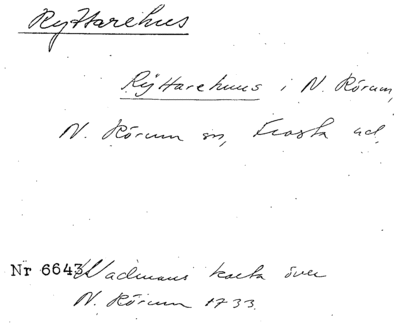 Ryttarehus
Rÿttarehuus i N. Rörum,
N. Rörum sn, Frosta hd.
Nr 6643 Wadmans karta över
N. Rörum 1733.